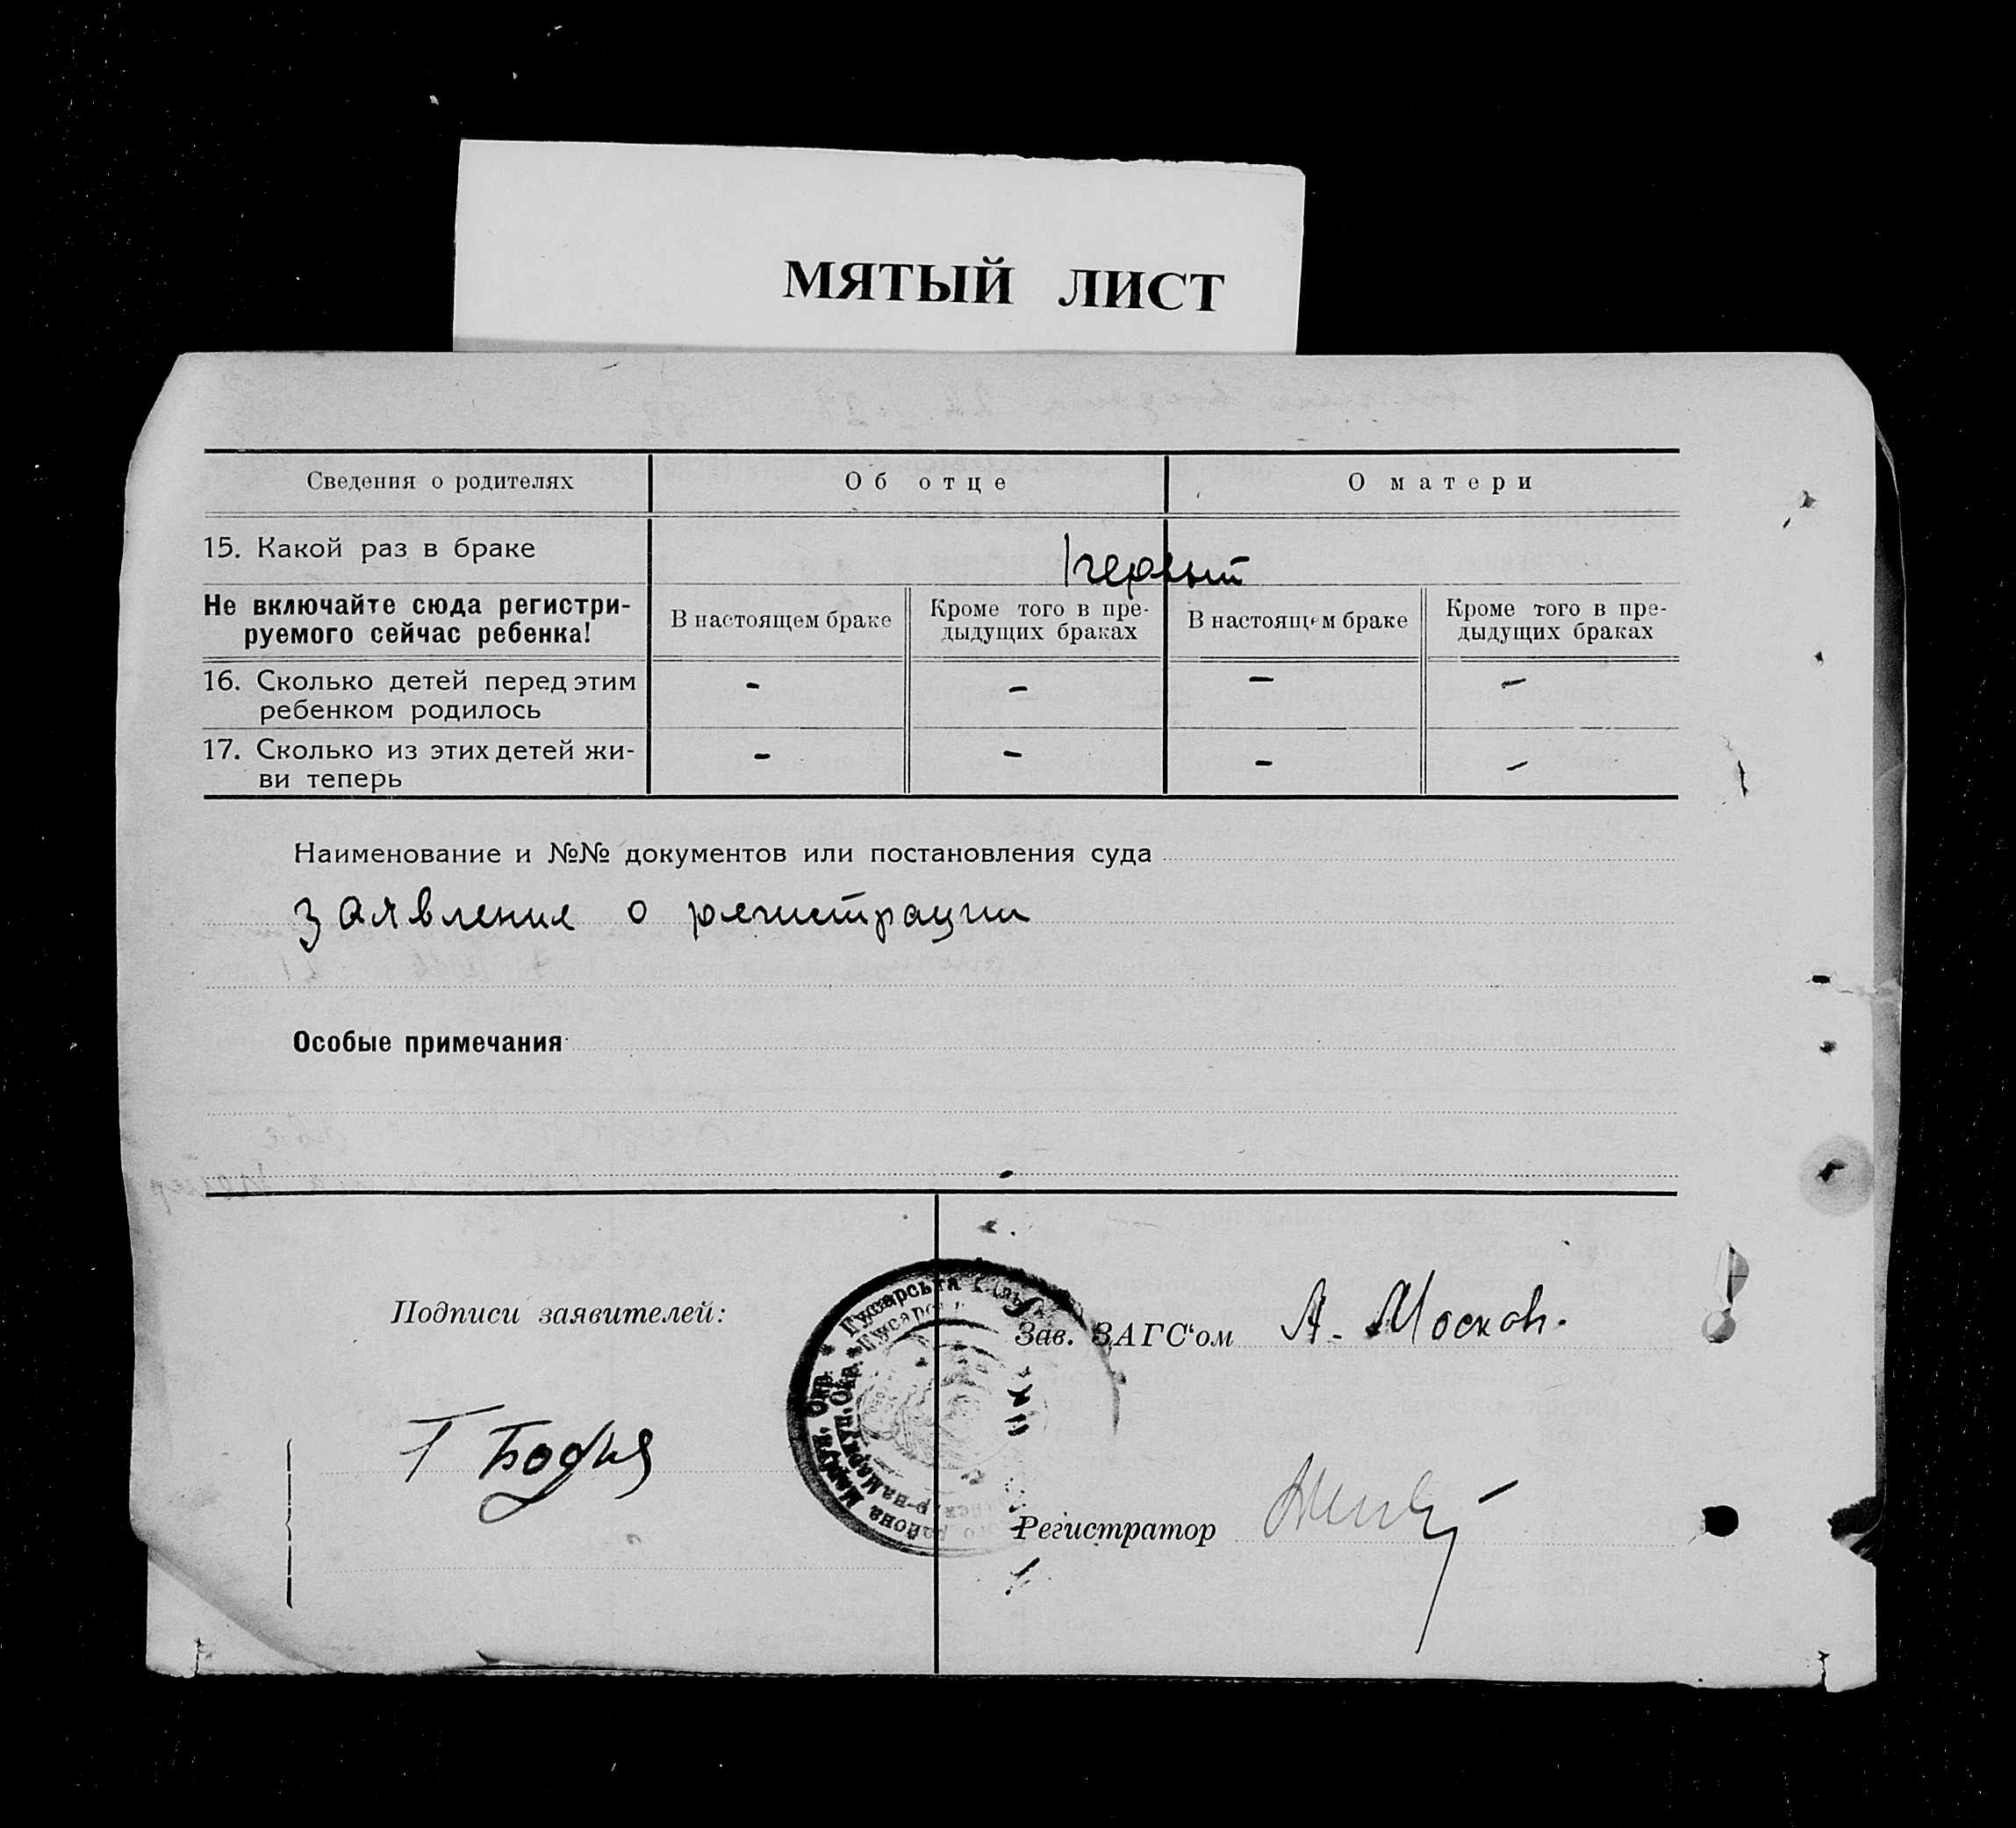 МЯТЫЙ ЛИСТ
Сведения о родителях
Об отце
О матери
15. Какой раз в браке
первый
Не включайте сюда регистри-
руемого сейчас ребенка!
В настоящем браке
Кроме того в пре-
дыдущих браках
В настоящем браке
Кроме того в пре-
дыдущих браках
16. Сколько детей перед этим
ребенком родилось
- - - -
17. Сколько из этих детей жи-
ви теперь
- - - -
Наименование и №№ документов или постановления суда
заявление о регистрации
Особые примечания
Подписи заявителей:
Зав. ЗАГС'ом А. Москов.
Регистратор